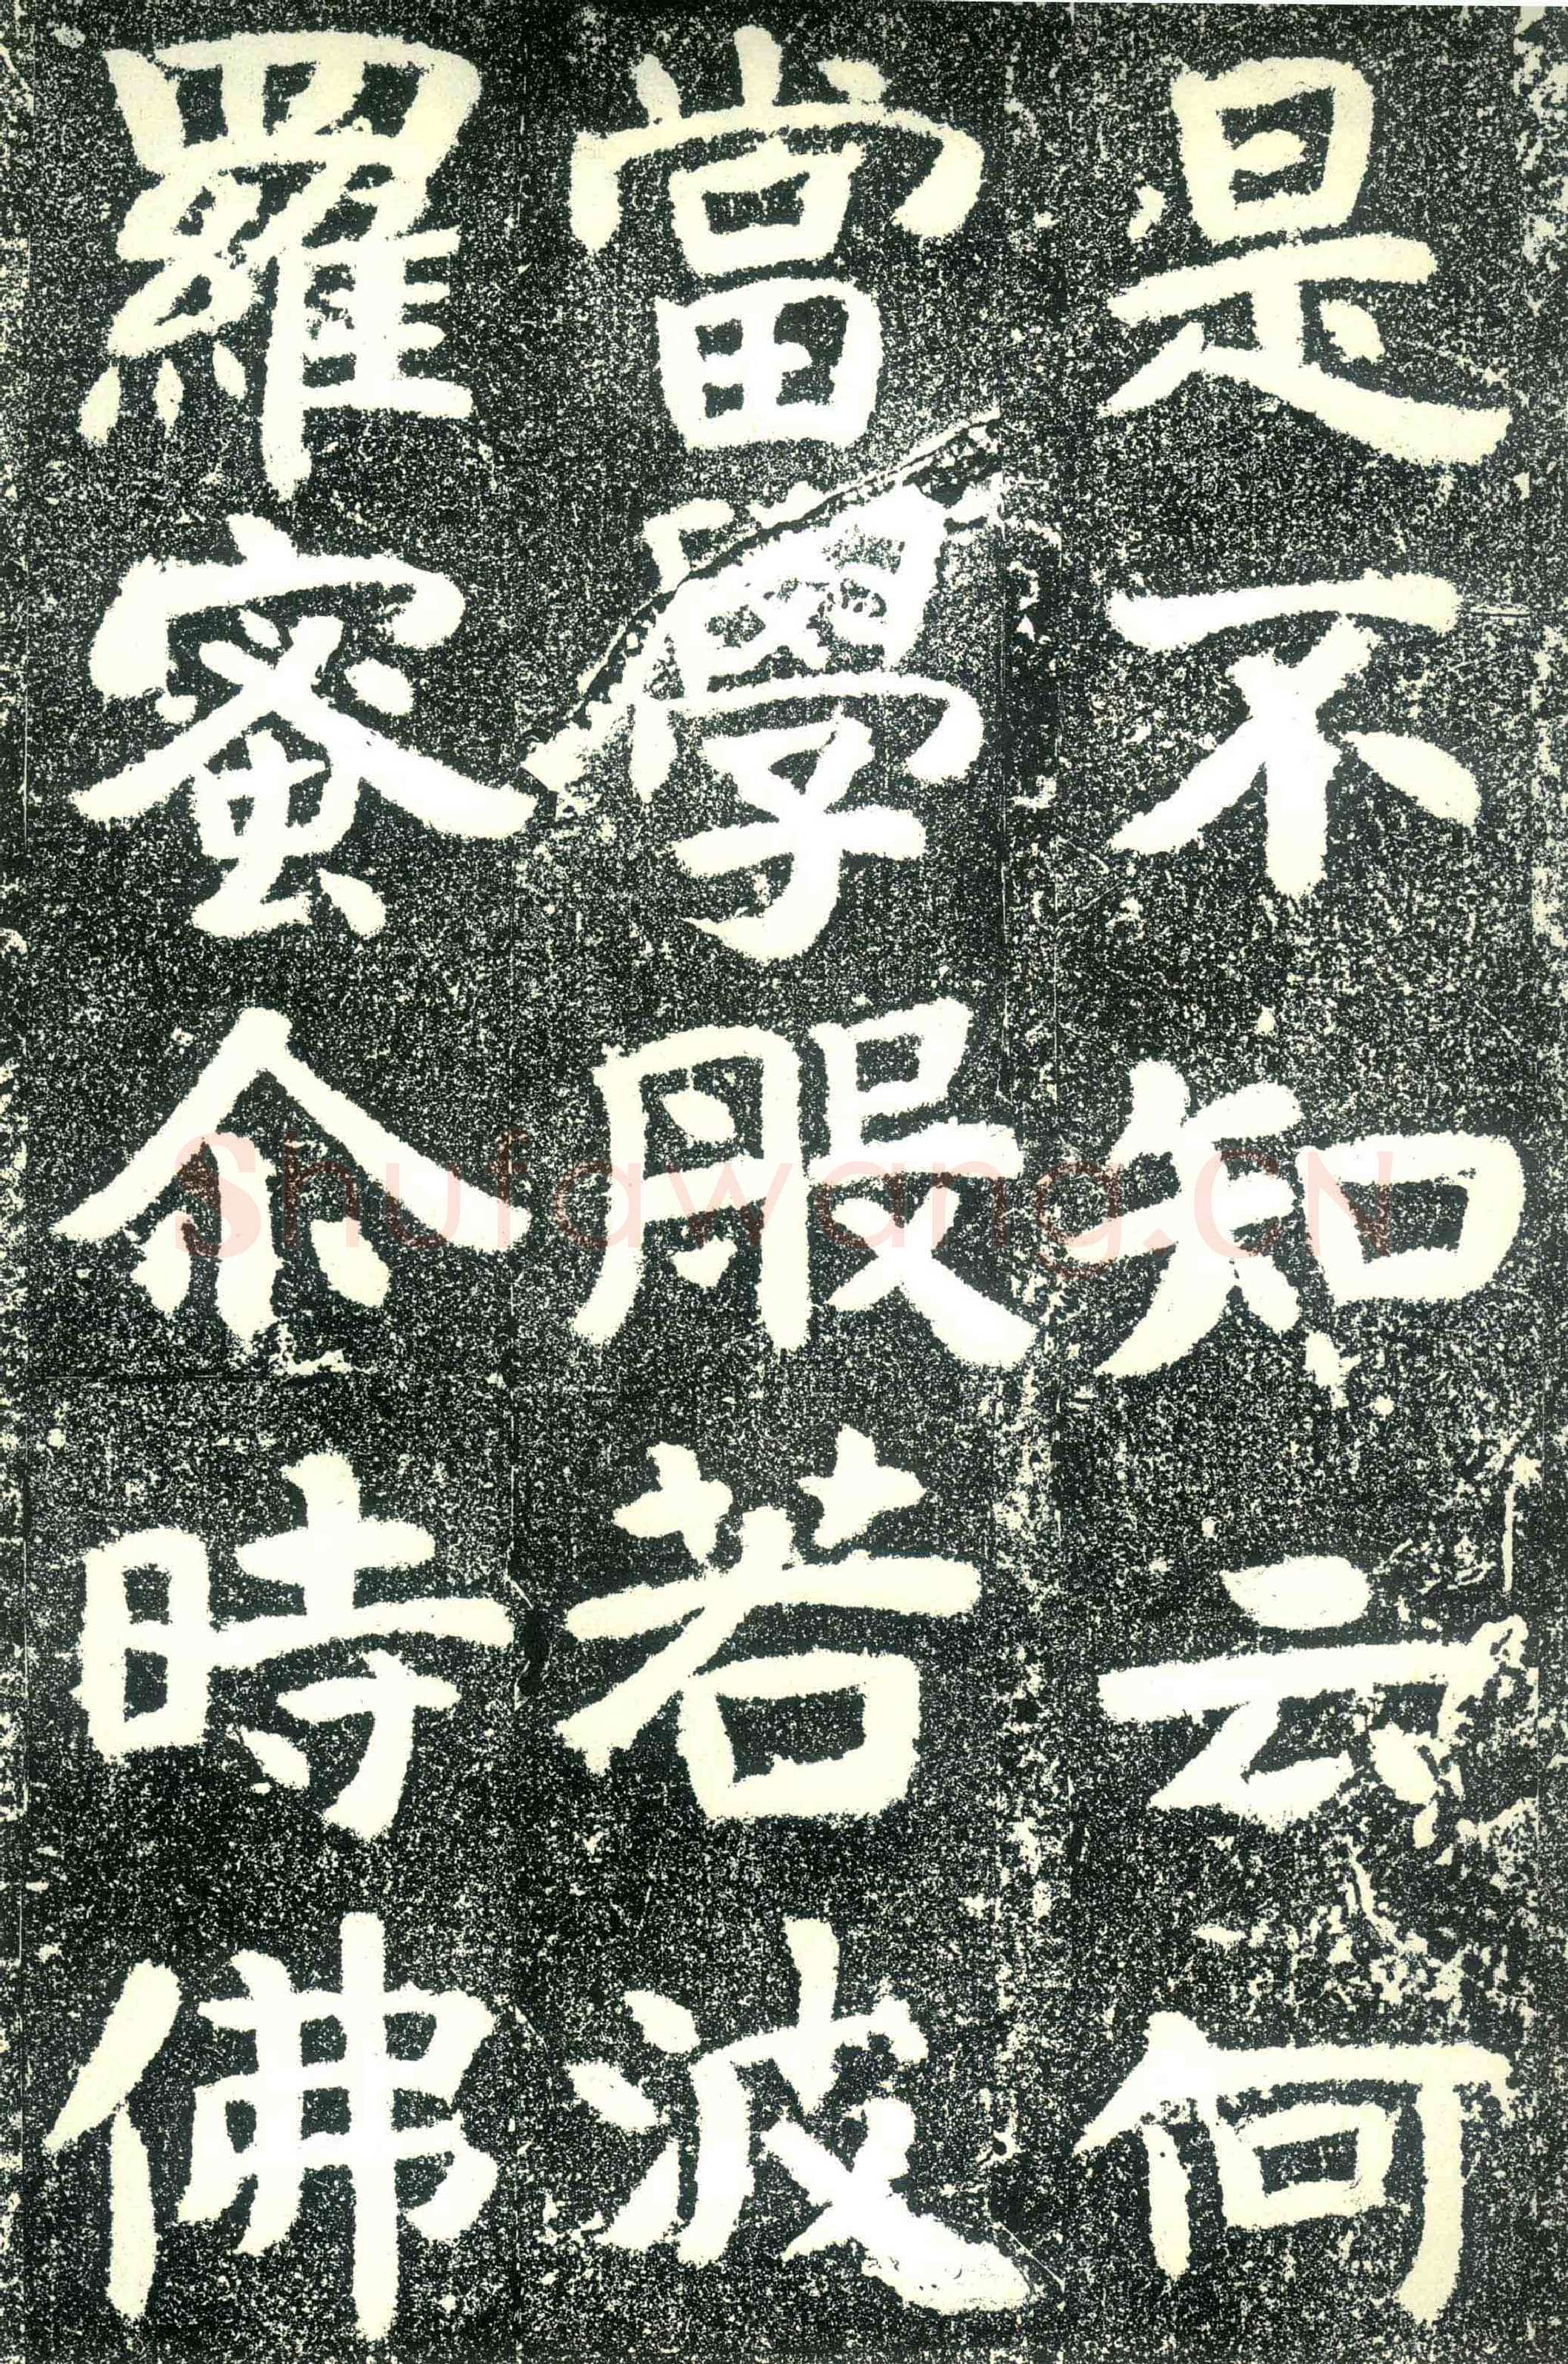 是不知云何
當學般若波
羅蜜尒時佛
Shufawang.CN